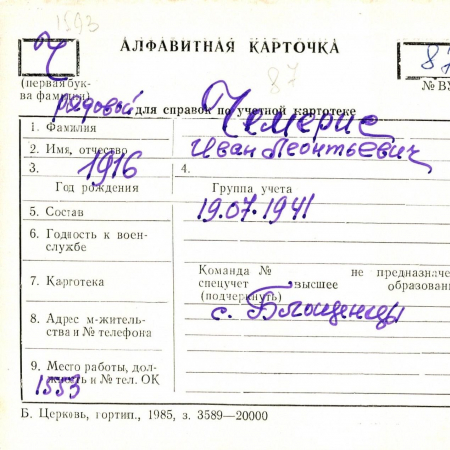 1593
АЛФАВИТНАЯ КАРТОЧКА
Ч
87
(первая бук-
ва фамилии)
№ ВУ
рядовой для справок по учетной картотеке
1. Фамилия Чемерис
2. Имя, отчество Иван Леонтьевич
3. 1916 4.
Год рождения Группа учета
5. Состав 19.07.1941
6. Годность к воен-
службе
Команда № не предназначе
7. Картотека спецучет высшее образовани
(подчеркнуть)
с. Блощенцы
8. Адрес м-житель-
ства и № телефона
9. Место работы, дол-
жность и № тел. ОК
1553
Б. Церковь, гортип., 1985, з. 3589—20000